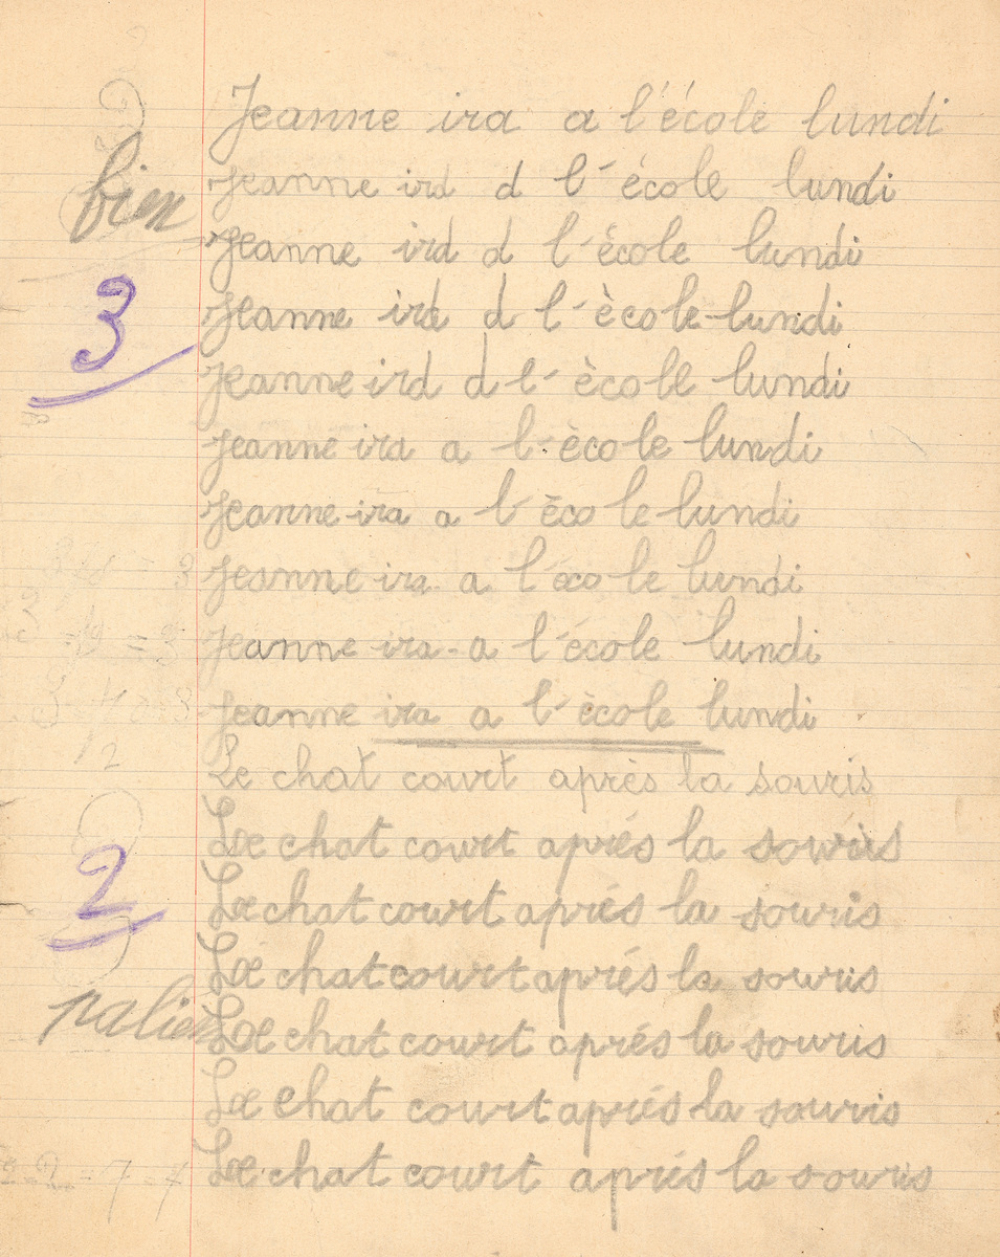 Jeanne ira a l'école lundi
bien
Jeanne ird d l'école lundi
Jeanne ird d l'ècole lundi
3
Jeanne ird d l'ècole lundi
Jeanne ird d l'ècole lundi
Jeanne ira a l'ècole lundi
Jeanne ira a l'école lundi
Jeanne ira a l'école lundi
Jeanne ira a l'école lundi
Jeanne ira a l'ècole lundi
12
Le chat court après la souris
Le chat court aprés la souris
2
Le chat court aprés la souris
Le chat court aprés la souris
Le chat court aprés la souris
Le chat court aprés la souris
Le chat court aprés la souris